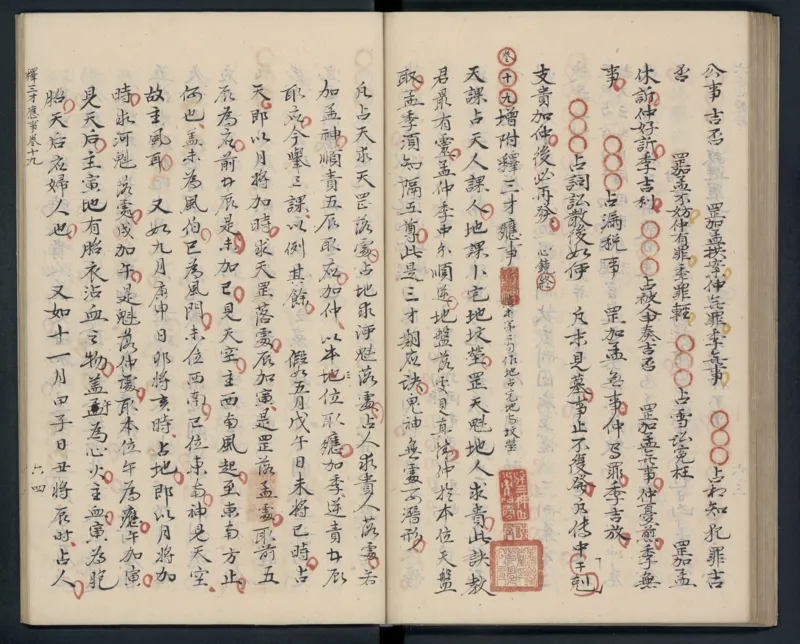 公事吉否　罡加孟拱寧仲無罪季無事　○○○占初知犯罪吉
否　罡加孟不妨仲有罪季罪輕　○○○占雪訟冤枉　罡加孟
休訴仲好訴季吉利　○○○占被命奏吉否　罡加孟無事仲憂煎季無
事　○○○占漏稅事　罡加孟無事仲有罪季吉放
○○○占詞訟散後如何　凡未見墓事止不復發凡傳中干剋
支貴加仲後必再發　心鏡終
卷十九增附釋三才應事
天課占天人課人地課卜宅地墳塋罡天魁地人求貴此訣教
君最有靈孟仲季中分順逆地盤落處見真情仲於本位天盤
取孟季須知隔五尊此是三才類應訣鬼神無處可潛形
凡占天求天罡落處占地求河魁落處占人求貴人落處若
加孟神順責五辰取應加仲以本地位取應加季逆責五辰
取應今舉三課以例其餘　假如五月戊午日未將巳時占
天即以月將加時求天罡落處辰加寅是罡落孟處取前五
辰為應前五辰是未加巳見天空主西南風起至東南方止
何也蓋未為風伯巳為風門未位西南巳位東南神見天空
故主風耳　又如九月庚申日卯將亥時占地即以月將加
時求河魁落處戌加午是魁落仲處取本位午為應午加寅
見天后主寅地有胎衣沾血之物蓋午為心火主血寅為胞
胎天后為婦人也　又如十一月甲子日丑將辰時占人
釋三才應事卷十九
六四